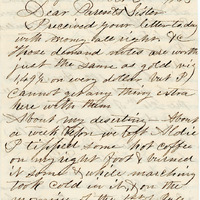 Dear Parents & Sister
I received your letter to day
with money all right. &c
Those demand notes are worth
just the same as gold viz
1.49½ on every dollar but I
cannot get any thing extra
here with them
About my deserting — About
a week before we left Aldie
I tipped some hot coffee
on my right foot & burned
it some & while marching
took cold in it & on the
morning of the